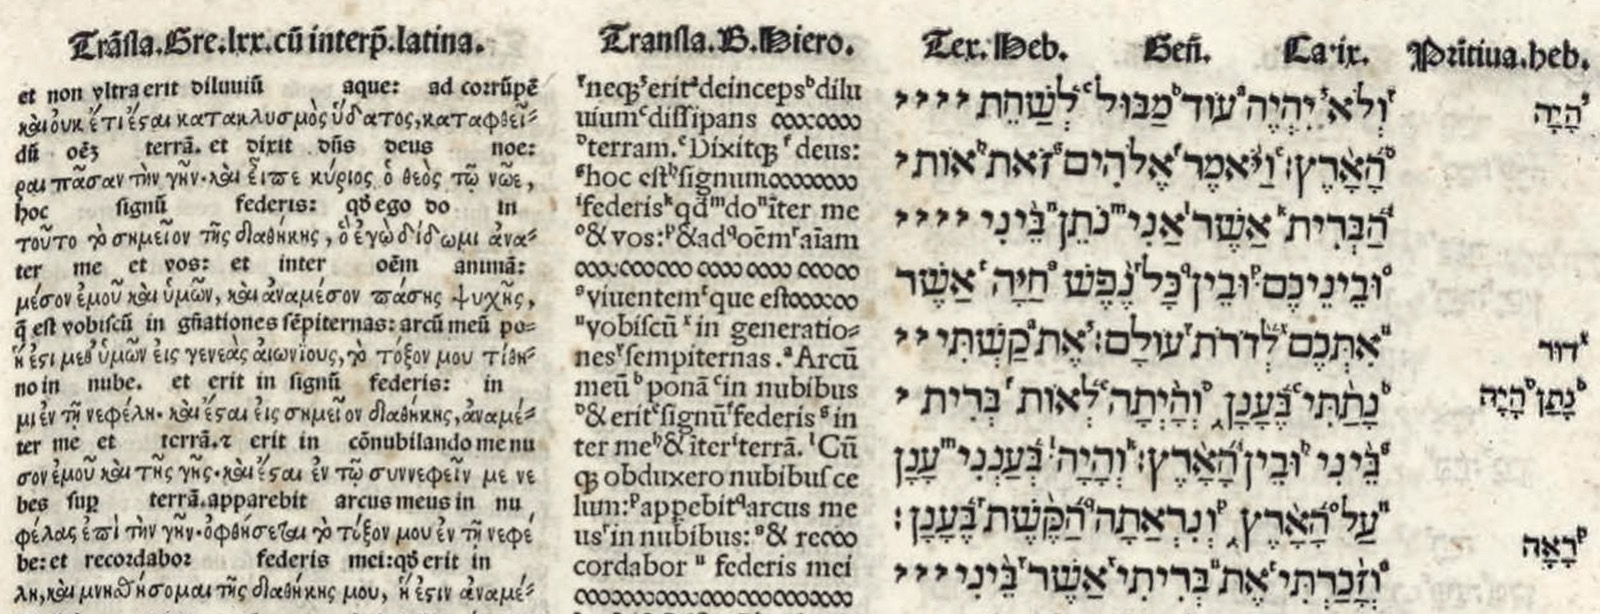 Trãsla.Gre.lxx.cũ interp̃.latina.
et non vltra erit diluuiũ aque: ad corrũpẽ
καὶ οὐκ ἔτι ἔσαι κατακλυσμὸς ὕδατος, καταφθεῖ-
dũ oẽz terrã. et dixit dñs deus noe:
ραι πᾶσαν τὴν γῆν. καὶ εἶπε κύριος ὁ θεὸς τῷ νῶε,
hoc signũ federis: qđ ego do in
τοῦτο τὸ σημεῖον τῆς διαθήκης, ὃ ἐγὼ δίδωμι ἀνα-
ter me et vos: et inter oẽm animã:
μέσον ἐμοῦ καὶ ὑμῶν, καὶ ἀναμέσον πάσης ψυχῆς,
q̃ est vobiscũ in gñationes sẽpiternas: arcũ meũ po-
ἥ ἐςι μεθ᾽ ὑμῶν εἰς γενεὰς αἰωνίους, τὸ τόξον μου τίθη-
no in nube. et erit in signũ federis: in
μι ἐν τῇ νεφέλῃ. καὶ ἔςαι εἰς σημεῖον διαθήκης, ἀναμέ-
ter me et terrã. ⁊ erit in cõnubilando me nu
σον ἐμοῦ καὶ τῆς γῆς. καὶ ἔςαι ἐν τῷ συννεφεῖν με νε
bes sup terrã. apparebit arcus meus in nu
φέλας ἐπὶ τὴν γῆν. ὀφθήσεται τὸ τόξον μου ἐν τῇ νεφέ
be: et recordabor federis mei: qđ erit in
λῃ, καὶ μνηθήσομαι τῆς διαθήκης μου, ἥ ἐςιν ἀναμέ-
Transla.B.Hiero.
neq; erit deinceps dilu
uium dissipans
terram. Dixitq; deus:
hoc est signum
federis qđ do ĩter me
& vos: & ad oẽm aĩam
viuentem que est
vobiscũ in generatio-
nes sempiternas. Arcũ
meũ ponã in nubibus
& erit signũ federis in
ter me & ĩter terrã. Cũ
q; obduxero nubibus ce
lum: appebit arcus me
us in nubibus: & reco
cordabor federis mei
Tex.Heb. Geñ. Ca.ix.
וְלֹא יִהְיֶה עוֹד מַבּוּל לְשַׁחֵת
הָאָרֶץ: וַיֹּאמֶר אֱלֹהִים זֹאת אוֹת
הַבְּרִית אֲשֶׁר אֲנִי נֹתֵן בֵּינִי
וּבֵינֵיכֶם וּבֵין כָּל נֶפֶשׁ חַיָּה אֲשֶׁר
אִתְּכֶם לְדֹרֹת עוֹלָם: אֶת קַשְׁתִּי
נָתַתִּי בֶּעָנָן וְהָיְתָה לְאוֹת בְּרִית
בֵּינִי וּבֵין הָאָרֶץ: וְהָיָה בְּעַנְנִי עָנָן
עַל הָאָרֶץ וְנִרְאֲתָה הַקֶּשֶׁת בֶּעָנָן:
וְזָכַרְתִּי אֶת בְּרִיתִי אֲשֶׁר בֵּינִי
Pritiua.heb.
הָיָה
דור
נָתַן הָיָה
רָאָה